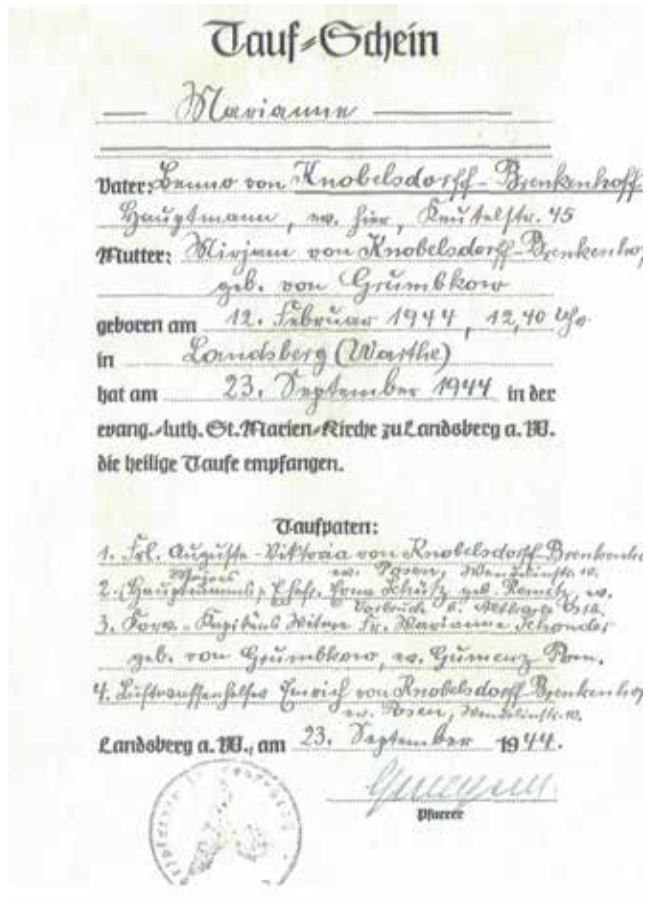 Tauf-Schein
Marianne
Vater: Benno von Knobelsdorff-Brenkenhoff
Hauptmann, ev. hier, Keutelstr. 45
Mutter: Mirjam von Knobelsdorff-Brenkenho
geb. von Grumbkow
geboren am 12. Februar 1944, 12,40 Uhr
in Landsberg (Warthe)
hat am 23. September 1944 in der
evang.-luth. St. Marien-Kirche zu Landsberg a. W.
die heilige Taufe empfangen.
Taufpaten:
1. Frl. Auguste-Viktoria von Knobelsdorff-Brenkenho
ev. Posen, Wendelinstr. 10.
Majors
2. (Hauptmanns) Ehefr. Erna Schütz geb. ev.
Vorbruch b.
3. Korv.-Kapitäns Witwe Fr. Marianne
geb. von Grumbkow, ev. Gumenz Pom.
4. Luftwaffenhelfer von Knobelsdorff-Brenkenhof
ev. Posen, Wendelinstr. 10.
Landsberg a. W., am 23. September 1944.
Pfarrer